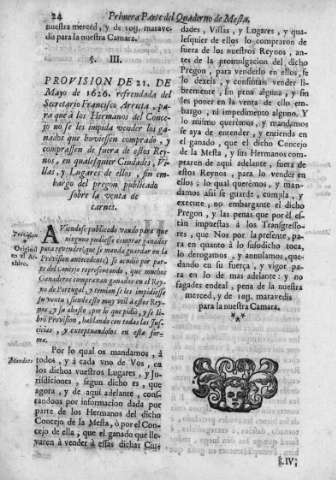 24 Primera Parte del Quaderno de Mesta,
nuestra merced, y de 10[]. maravedis
dis para la nuestra Camara.
§. III.
PROVISION DE 21. DE
Mayo de 1626. refrendada del
Secretario Francisco Arrieta, pa-
ra que à los Hermanos del Conce-
jo no se les impida vender los ga-
nados que huviessen comprado, y
comprassen de fuera de estos Rey-
nos, en qualesquier Ciudades, Vi-
llas, y Lugares de ellos, sin em-
bargo del pregon publicado
sobre la venta de
carnes.
Provision
Original
en el Ar-
chivo.
AViendose publicado vando para que
ninguno pudiesse comprar ganados
para revender, (que se manda guardar en la
Provision antecedente) se acudiò por par-
te del Concejo representando, que muchos
Ganaderos compravan ganados en el Rey-
no de Portugal, y temian se les impidiesse
su venta, siendo esto muy util à estos Rey-
nos, y su abasto, por lo que pidiò, y se li-
brò Provision, hablando con todas las Jus-
ticias, y exceptuandolos en esta for-
ma.
Mandato.
Por lo qual os mandamos, à
todos, y à cada uno de Vos, en
los dichos vuestros Lugares, y Ju-
risdiciones, segun dicho es, que
agora, y de aqui adelante, cons-
tandoos por informacion dada por
parte de los Hermanos del dicho
Concejo de la Mesta, ò por el Con-
cejo de ella, que el ganado que lle-
varen à vender à essas dichas Ciu-
dades, Villas, y Lugares, y qua-
lesquier de ellos lo compraron de
fuera de los nuestros Reynos, an-
tes de la promulgacion del dicho
Pregon, para venderlo en ellos, se
lo dexeis, y consintais vender li-
bremente, sin pena alguna, y sin
les poner en la venta de ello em-
bargo, ni impedimento alguno. Y
lo mismo queremos, y mandamos
se aya de entender, y entienda en
el ganado, que el dicho Concejo
de la Mesta, y sus Hermanos com-
praren de aqui adelante, fuera de
estos Reynos, para lo vender en
ellos, sin embargo del dicho Pre-
gon: lo qual queremos, y man-
damos assi se guarde, cumpla, y
execute, no embargante el dicho
Pregon, y las penas que por èl es-
tàn impuestas à los Transgresso-
res, que Vos por la presente, pa-
ra en quanto à lo susodicho toca,
lo derogamos, y annulamos, que-
dando en su fuerça, y vigor pa-
ra en lo de mas adelante: y no
fagades endeal, pena de la nuestra
merced, y de maravedis
para la nuestra Camara.
***
§.IV;